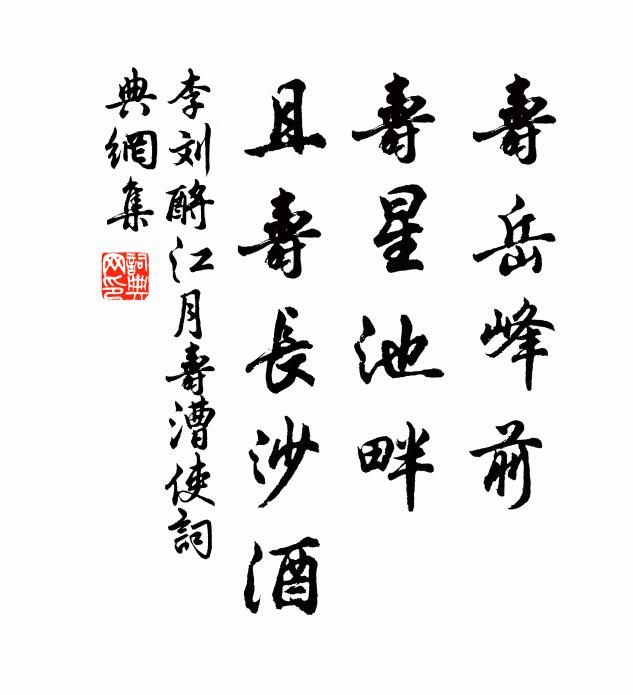 壽岳峰前
壽星池畔
且壽長沙酒
李刘酹江月壽漕使詞
典網集
詞典網印